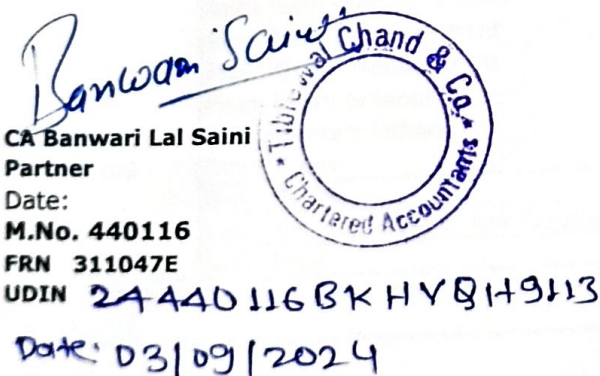 Banwari Saini
Tibrewal Chand & Co.
* Chartered Accountants *
CA Banwari Lal Saini
Partner
Date:
M.No. 440116
FRN 311047E
UDIN 24440116BKHVQH9113
Date: 03/09/2024